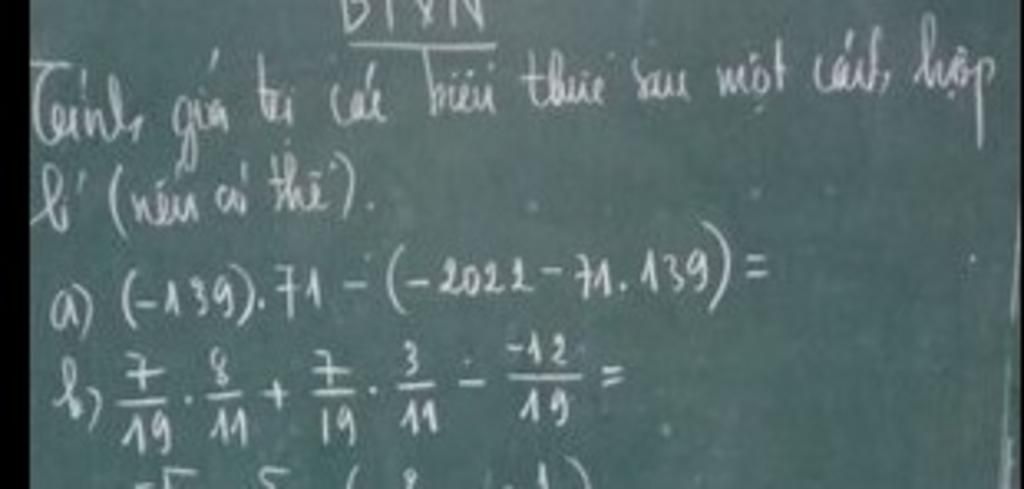 BTVN
Tính giá trị các biểu thức sau một cách hợp
lí (nếu có thể).
a) (-139).71 - (-2022 - 71.139) =
b) 7/19 . 8/11 + 7/19 . 3/11 - -12/19 =